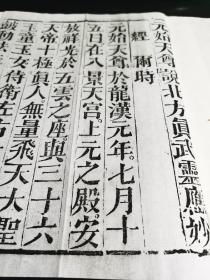 元始天尊說北方真武靈應妙
經 時
元始天尊於龍漢元年。七月十
五日在八景天宮。上元之殿。安
放祥光於五雲之座與三十六
天帝十極真人無量飛天大聖
玉童玉女侍衛左